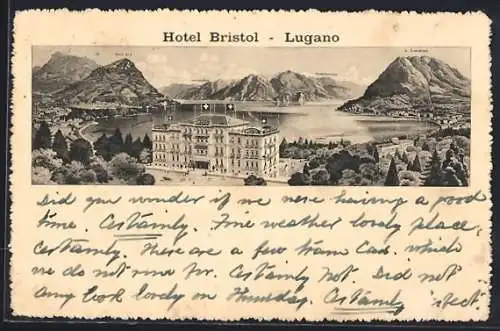 Hotel Bristol - Lugano
Did you wonder if we were having a good
time. Certainly. Fine weather lovely place,
Certainly. There are a few tram Cars. which
we do not run for. Certainly not. Did not
Amy look lovely on Thursday. Certainly